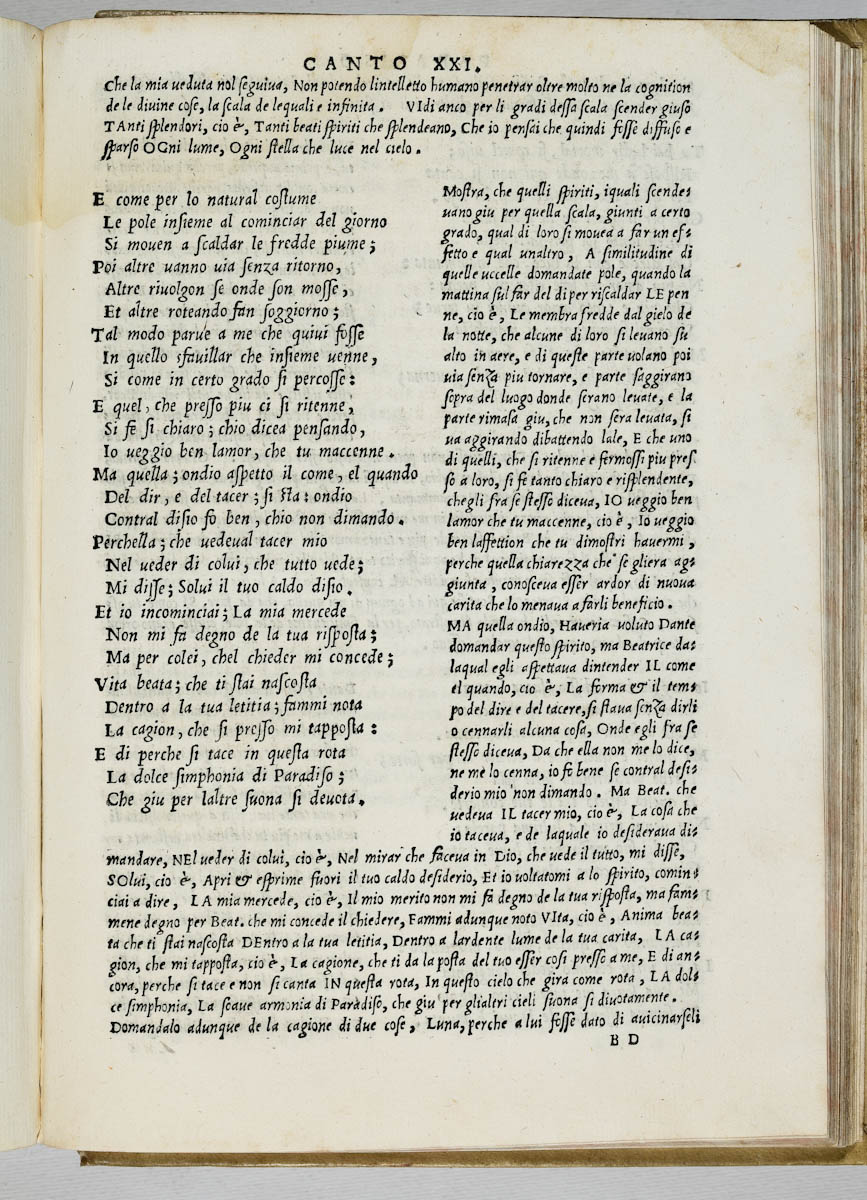 CANTO XXI.
Che la mia ueduta nol seguiua, Non potendo lintelletto humano penetrar oltre molto ne la cognition
de le diuine cose, la scala de lequali e infinita. VIdi anco per li gradi dessa scala scender giuso
TAnti splendori, cio è, Tanti beati spiriti che splendeano, Che io pensai che quindi fosse diffuso e
sparso OGni lume, Ogni stella che luce nel cielo.
E come per lo natural costume
Le pole insieme al cominciar del giorno
Si mouen a scaldar le fredde piume;
Poi altre uanno uia senza ritorno,
Altre riuolgon se onde son mosse,
Et altre roteando fan soggiorno;
Tal modo parue a me che quiui fosse
In quello sfauillar che insieme uenne,
Si come in certo grado si percosse:
E quel, che presso piu ci si ritenne,
Si fe si chiaro; chio dicea pensando,
Io ueggio ben lamor, che tu maccenne.
Ma quella; ondio aspetto il come, el quando
Del dir, e del tacer; si sta: ondio
Contral disio fo ben, chio non dimando.
Perchella; che uedeual tacer mio
Nel ueder di colui, che tutto uede;
Mi disse; Solui il tuo caldo disio.
Et io incominciai; La mia mercede
Non mi fa degno de la tua risposta;
Ma per colei, chel chieder mi concede;
Vita beata; che ti stai nascosta
Dentro a la tua letitia; fammi nota
La cagion, che si presso mi tapposta:
E di perche si tace in questa rota
La dolce simphonia di Paradiso;
Che giu per laltre suona si deuota.
Mostra, che quelli spiriti, iquali scende=
uano giu per quella scala, giunti a certo
grado, qual di loro si mouea a far un ef=
fetto e qual unaltro, A similitudine di
quelle uccelle domandate pole, quando la
mattina sul far del di per riscaldar LE pen
ne, cio è, Le membra fredde dal gielo de
la notte, che alcune di loro si leuano su
alto in aere, e di queste parte uolano poi
uia senza piu tornare, e parte saggirano
sopra del luogo donde serano leuate, e la
parte rimasa giu, che non sera leuata, si
ua aggirando dibattendo lale, E che uno
di quelli, che si ritenne e fermossi piu pres
so a loro, si fe tanto chiaro e risplendente,
chegli fra se stesso diceua, IO ueggio ben
lamor che tu maccenne, cio è, Io ueggio
ben laffettion che tu dimostri hauermi,
perche quella chiarezza che se gliera ag=
giunta, conosceua esser ardor di nuoua
carita che lo menaua a farli beneficio.
MA quella ondio, Haueria uoluto Dante
domandar questo spirito, ma Beatrice da=
laqual egli aspettaua dintender IL come
el quando, cio è, La forma & il tem=
po del dire e del tacere, si staua senza dirli
o cennarli alcuna cosa, Onde egli fra se
stesso diceua, Da che ella non me lo dice,
ne me lo cenna, io fo bene se contral desi=
derio mio non dimando. Ma Beat. che
uedeua IL tacer mio, cio è, La cosa che
io taceua, e de laquale io desideraua di=
mandare, NEl ueder di colui, cio è, Nel mirar che faceua in Dio, che uede il tutto, mi disse,
SOlui, cio è, Apri & esprime fuori il tuo caldo desiderio, Et io uoltatomi a lo spirito, comin=
ciai a dire, LA mia mercede, cio è, Il mio merito non mi fa degno de la tua risposta, ma fam=
mene degno per Beat. che mi concede il chiedere, Fammi adunque noto VIta, cio è, Anima bea=
ta che ti stai nascosta DEntro a la tua letitia, Dentro a lardente lume de la tua carita, LA ca=
gion, che mi tapposta, cio è, La cagione, che ti da la posta del tuo esser cosi presso a me, E di an=
cora, perche si tace e non si canta IN questa rota, In questo cielo che gira come rota, LA dol=
ce simphonia, La soaue armonia di Paradiso, che giu per glialtri cieli suona si diuotamente.
Domandalo adunque de la cagione di due cose, Luna, perche a lui fosse dato di auicinarseli
B D